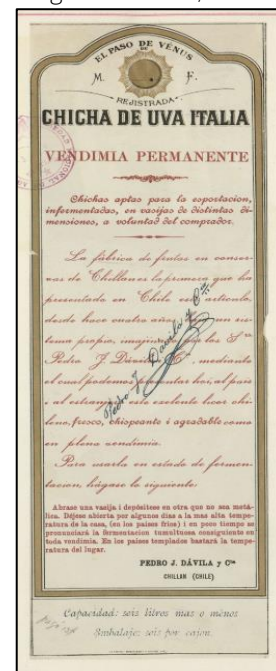 EL PASO DE VÉNUS
M. F.
REJISTRADA
CHICHA DE UVA ITALIA
VENDIMIA PERMANENTE
Chichas aptas para la esportacion,
infermentadas, en vasijas de distintas di-
mensiones, a voluntad del comprador.
La fábrica de frutas en conser-
vas de Chillan es la primera que ha
presentado en Chile este artículo,
desde hace cuatro años, en sis-
tema propio, por los Sres
Pedro J. Dávila y Ca., mediante
el cual podemos presentar hoi, al pais
i al estranjero este excelente licor chi-
leno, fresco, chispeante i agradable como
en plena vendimia.
Para usarla en estado de fermen-
tacion, hágase lo siguiente:
Pedro J. Dávila y Ca
Abrase una vasija i depositese en otra que no sea metá-
lica. Déjese abierta por algunos dias a la mas alta tempe-
ratura de la casa, (en los paises frios) i en poco tiempo se
pronunciará la fermentacion tumultuosa consiguiente en
toda vendimia. En los paises templados bastará la tempe-
ratura del lugar.
PEDRO J. DÁVILA y Cia
CHILLAN (CHILE)
Capacidad: seis litros mas o menos
Embalaje: seis por cajon.